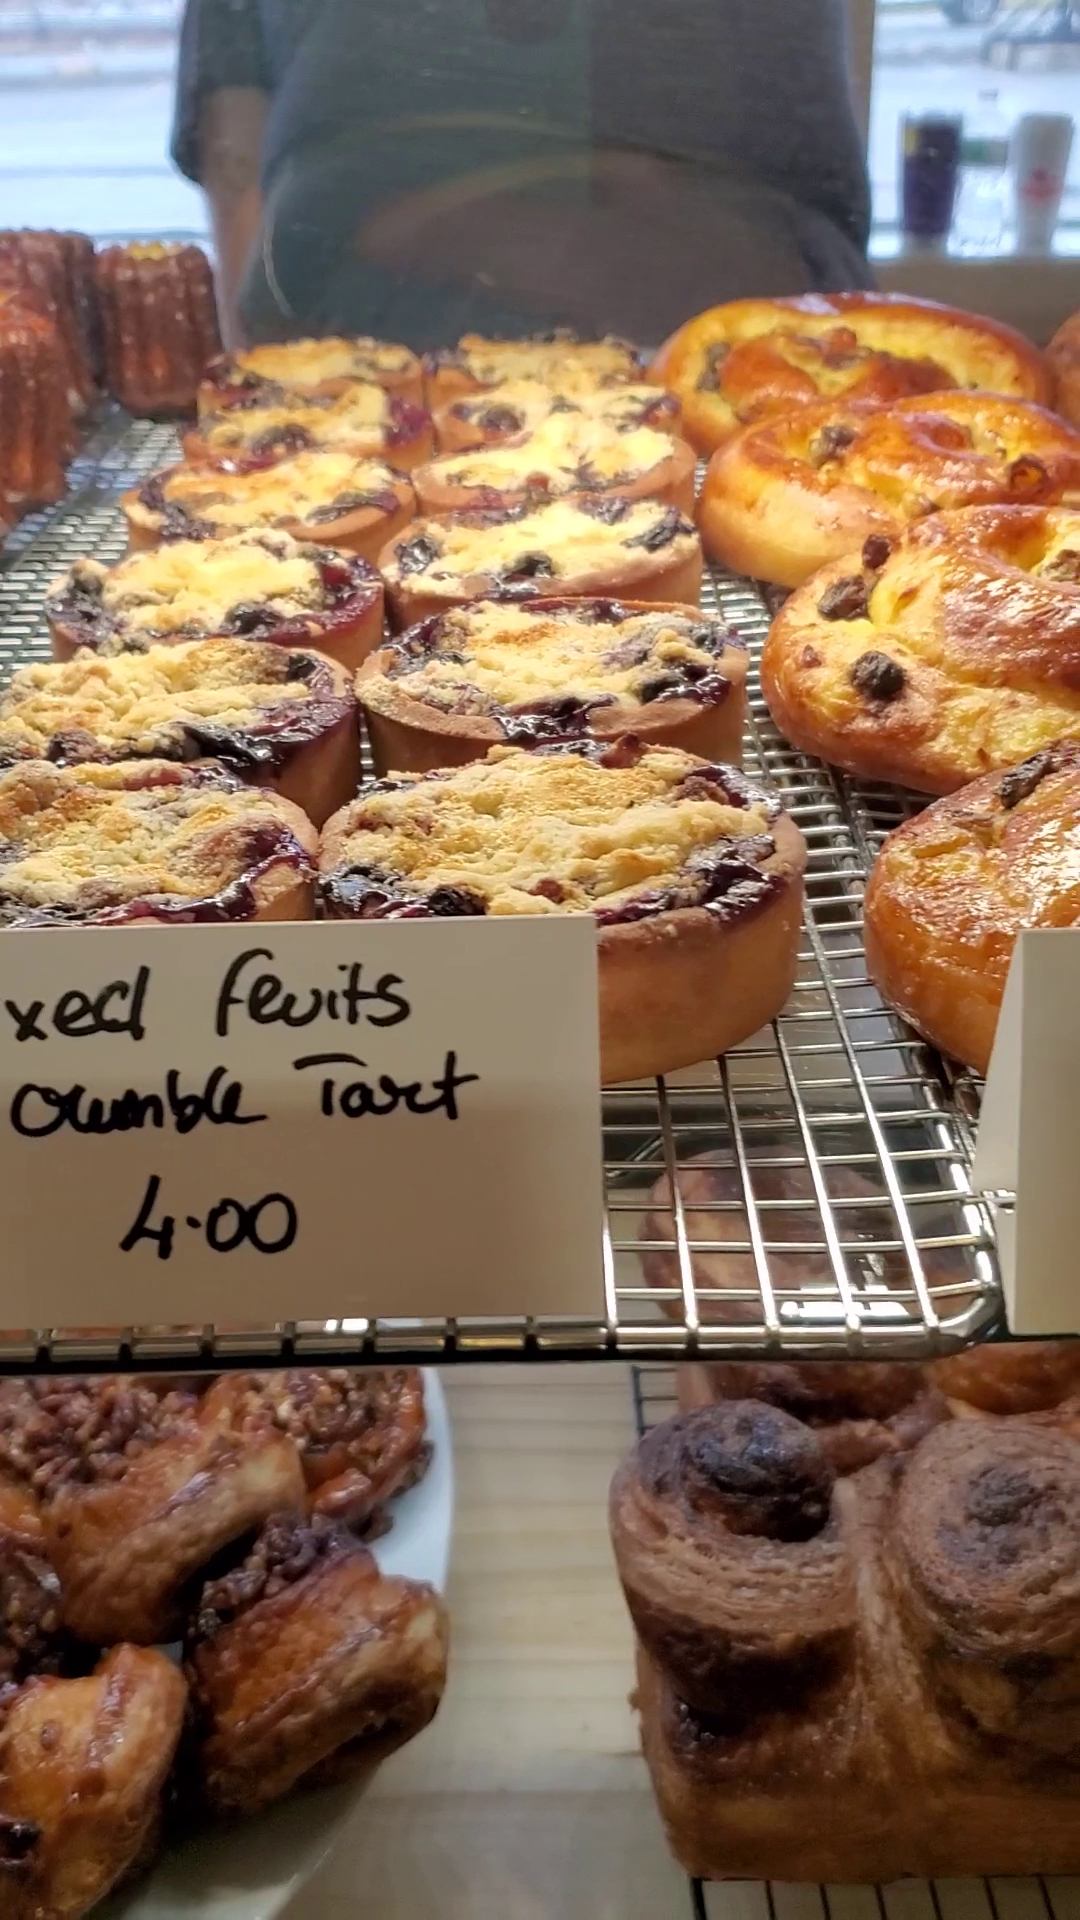 xed fruits
Crumble Tart
4.00